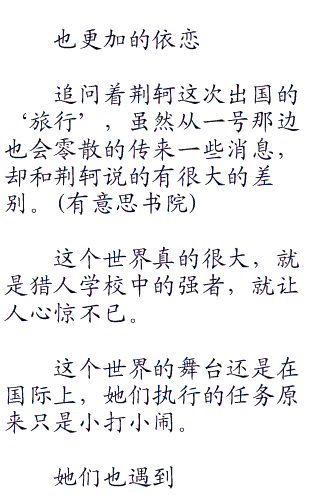 也更加的依恋
追问着荆轲这次出国的
‘旅行’，虽然从一号那边
也会零散的传来一些消息，
却和荆轲说的有很大的差
别。(有意思书院)
这个世界真的很大，就
是猎人学校中的强者，就让
人心惊不已。
这个世界的舞台还是在
国际上，她们执行的任务原
来只是小打小闹。
她们也遇到